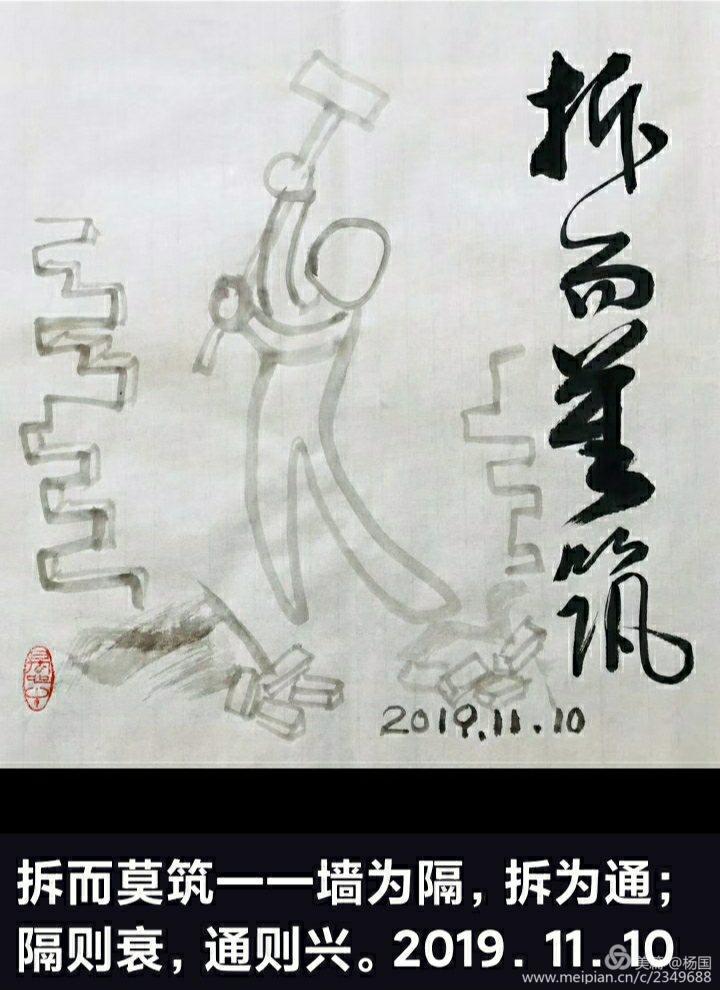 拆而莫筑
2019.11.10
拆而莫筑——墙为隔，拆为通；
隔则衰，通则兴。2019.11.10
美篇 @杨国
www.meipian.cn/c/2349688